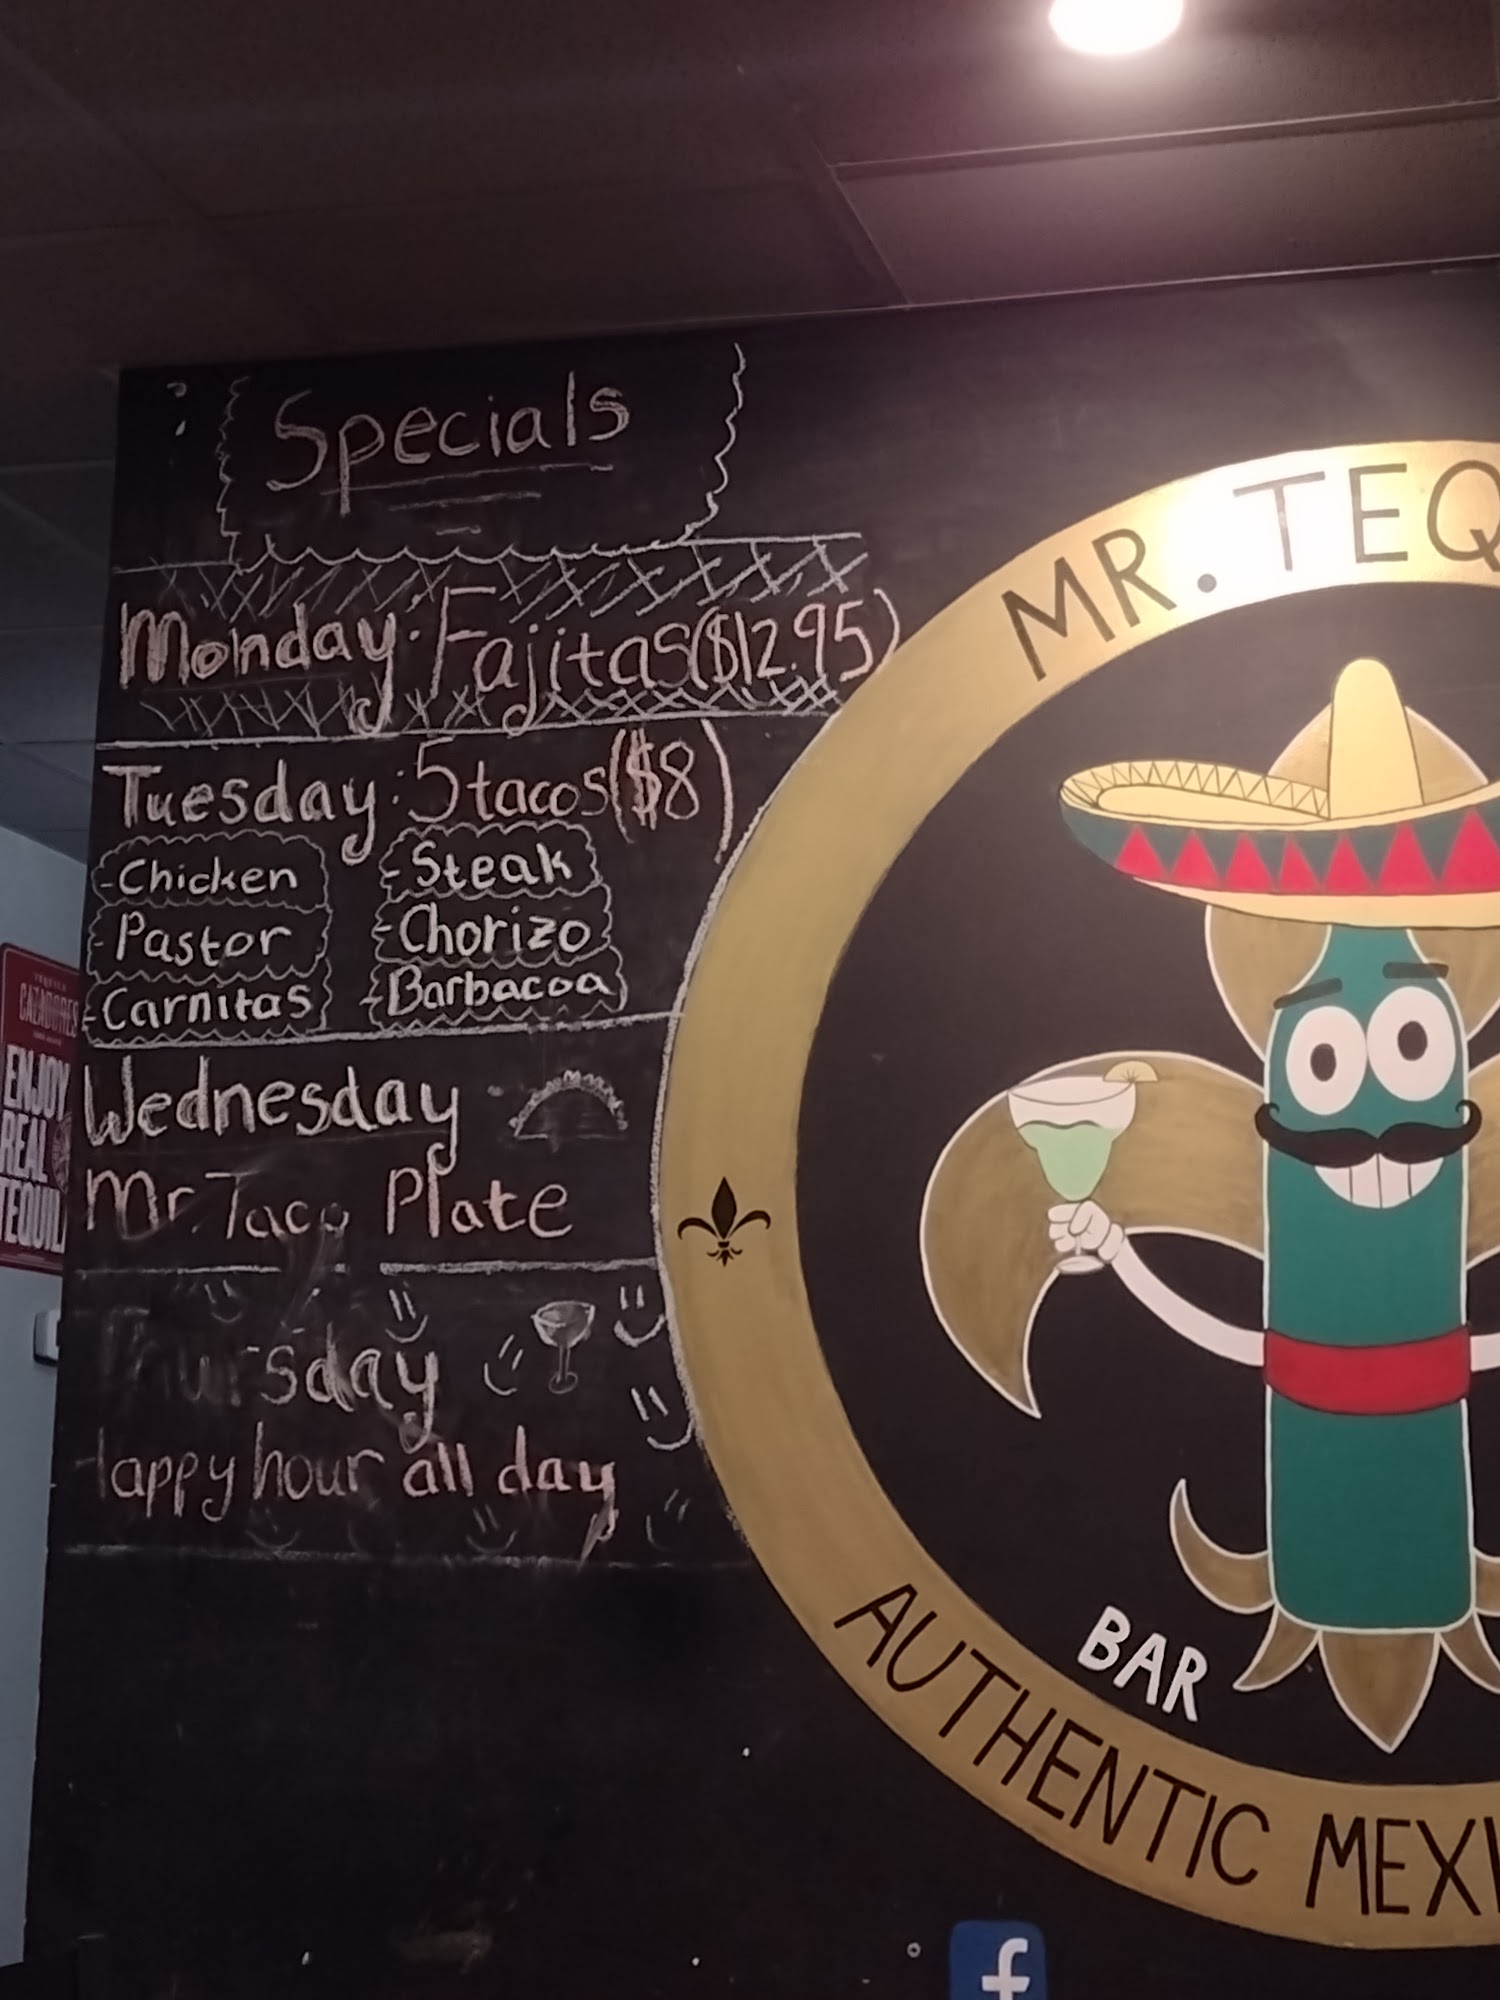 Specials
Monday: Fajitas ($12.95)
Tuesday: 5 tacos ($8)
-Chicken
-Steak
-Pastor
-Chorizo
-Carnitas
-Barbacoa
Wednesday
Mr. Taco Plate
Thursday
Happy hour all day
MR. TEQ
BAR
AUTHENTIC MEXI
f
TEQUILA
CAZADORES
ENJOY
REAL
TEQUIL